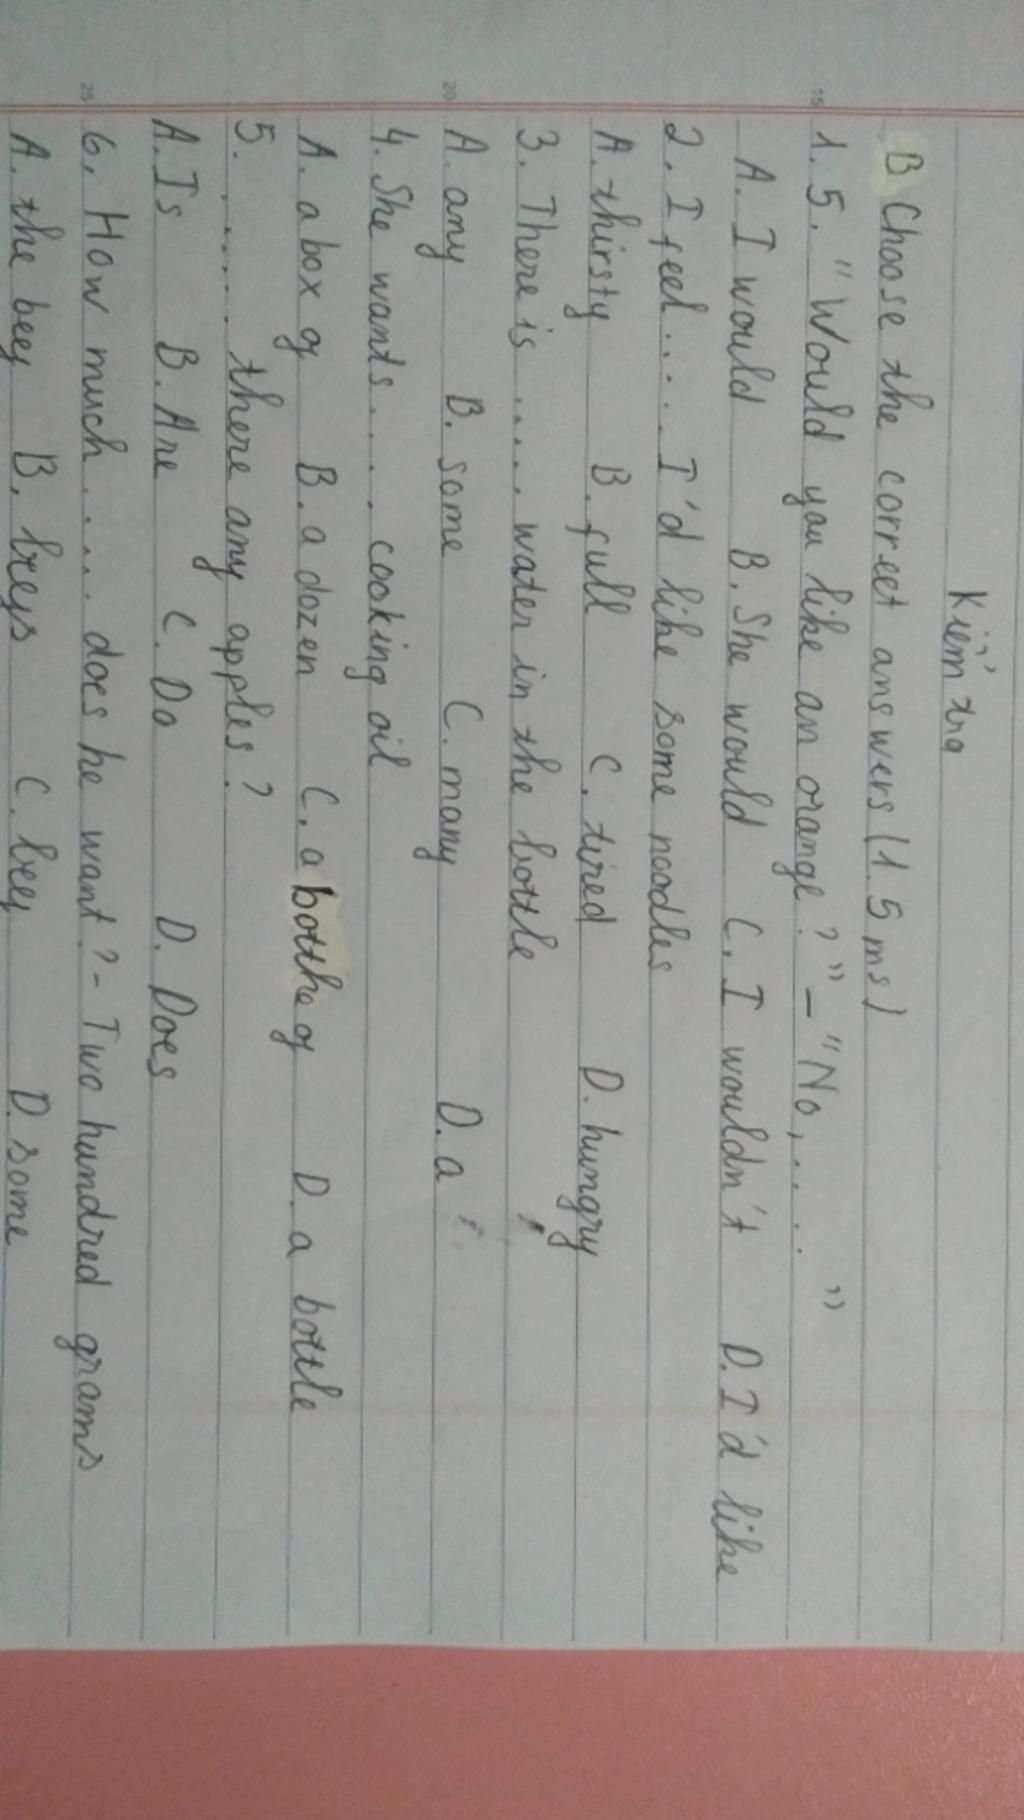 Kiểm tra
B Choose the correct answers (1.5 ms)
15
1. 5. "Would you like an orange?" – "No, ..... "
A. I would B. She would C. I wouldn't D. I'd like
2. I feel ..... I'd like some noodles
A. thirsty B. full C. tired D. hungry
3. There is ..... water in the bottle
20
A. any B. some C. many D. a
4. She wants .... cooking oil
A. a box of B. a dozen C. a botthe of D. a bottle
5. ...... there any apples?
A. Is B. Are C. Do D. Does
25
6. How much ..... does he want? - Two hundred grams
A. the beef B. beefs C. beef D. some